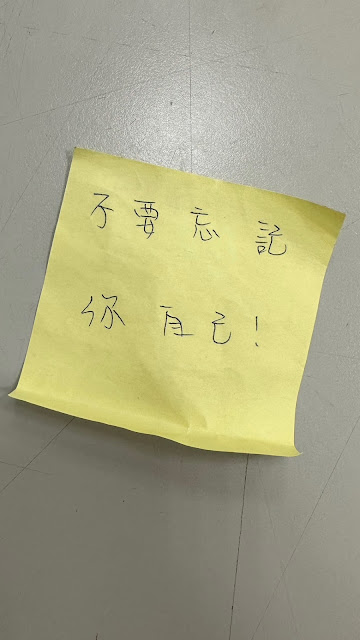 不要忘記
你自己!